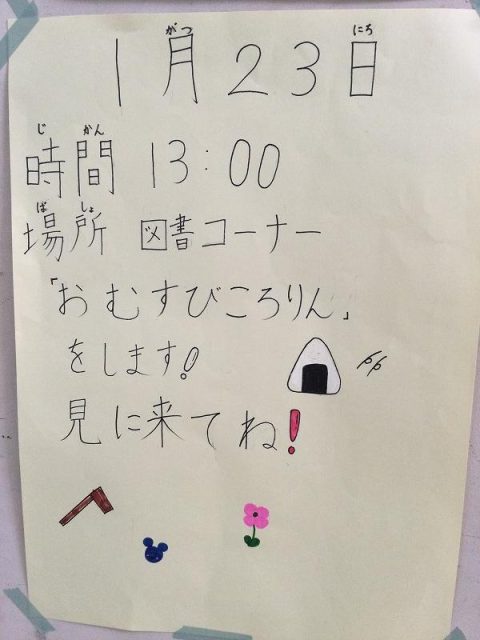 がつ にち
1月23日
じ かん
時間 13:00
ば しょ
場所 図書コーナー
「おむすびころりん」
をします!
見に来てね!